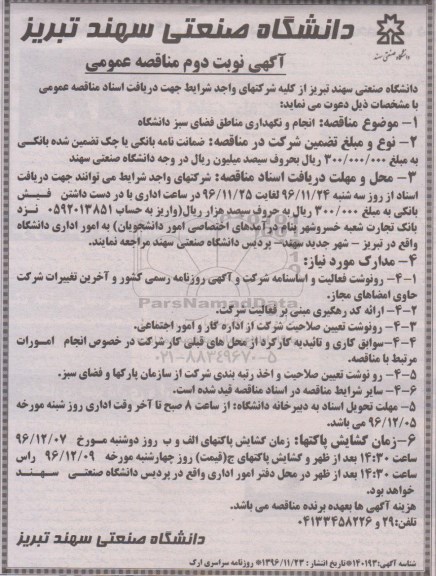 دانشگاه صنعتی سهند تبریز
دانشگاه صنعتی سهند
آگهی نوبت دوم مناقصه عمومی
دانشگاه صنعتی سهند تبریز از کلیه شرکتهای واجد شرایط جهت دریافت اسناد مناقصه عمومی
با مشخصات ذیل دعوت می نماید:
۱- موضوع مناقصه: انجام و نگهداری مناطق فضای سبز دانشگاه
۲- نوع و مبلغ تضمین شرکت در مناقصه: ضمانت نامه بانکی یا چک تضمین شده بانکی
به مبلغ ۳۰۰/۰۰۰/۰۰۰ ریال بحروف سیصد میلیون ریال در وجه دانشگاه صنعتی سهند
۳- محل و مهلت دریافت اسناد مناقصه: شرکتهای واجد شرایط می توانند جهت دریافت
اسناد از روز سه شنبه ۹۶/۱۱/۲۴ لغایت ۹۶/۱۱/۲۵ در ساعت اداری با در دست داشتن فیش
بانکی به مبلغ ۳۰۰/۰۰۰ ریال به حروف سیصد هزار ریال(واریز به حساب ۰۵۹۲۰۱۳۸۵۱ نزد
بانک تجارت شعبه خسروشهر بنام درآمدهای اختصاصی امور دانشجویان) به امور اداری دانشگاه
واقع در تبریز - شهر جدید سهند- پردیس دانشگاه صنعتی سهند مراجعه نمایند.
۴- مدارک مورد نیاز:
۴-۱- رونوشت فعالیت و اساسنامه شرکت و آگهی روزنامه رسمی کشور و آخرین تغییرات شرکت
حاوی امضاهای مجاز.
۴-۲- ارائه کد رهگیری مبنی بر فعالیت شرکت.
۴-۳- رونوشت تعیین صلاحیت شرکت از اداره کار و امور اجتماعی.
۴-۴-سوابق کاری و تائیدیه کارکرد از محل های قبلی کار شرکت در خصوص انجام امورات
مرتبط با مناقصه.
۴-۵- رو نوشت تعیین صلاحیت و اخذ رتبه بندی شرکت از سازمان پارکها و فضای سبز.
۴-۶- سایر شرایط مناقصه در اسناد مناقصه قید شده است.
۵- مهلت تحویل اسناد به دبیرخانه دانشگاه: از ساعت ۸ صبح تا آخر وقت اداری روز شنبه مورخه
۹۶/۱۲/۰۵ می باشد.
۶-زمان گشایش پاکتها: زمان گشایش پاکتهای الف و ب روز دوشنبه مورخ ۹۶/۱۲/۰۷
ساعت ۱۴:۳۰ بعد از ظهر و گشایش پاکتهای ج(قیمت) روز چهارشنبه مورخه ۹۶/۱۲/۰۹ راس
ساعت ۱۴:۳۰ بعد از ظهر در محل دفتر امور اداری واقع در پردیس دانشگاه صنعتی سهند
خواهد بود.
هزینه آگهی ها بعهده برنده مناقصه می باشد.
تلفن:۲۹ و ۰۴۱۳۳۴۵۸۲۲۶
دانشگاه صنعتی سهند تبریز
شناسه آگهی:۱۴۰۱۹۳*تاریخ انتشار : ۱۳۹۶/۱۱/۲۳* روزنامه سراسری ارک
ParsNamadData
۰۲۱-۸۸۳۴۹۶۷۰-۵